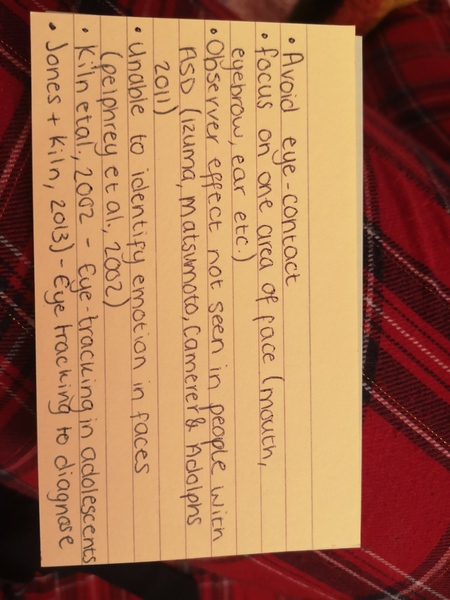 • Avoid eye-contact
• focus on one area of face (mouth,
eyebrow, ear etc.)
• Observer effect not seen in people with
ASD (Izuma, Matsumoto, Camerer & Adolphs
2011)
• Unable to identify emotion in faces
(pelphrey et al., 2002)
• Kiln et al., 2002 - Eye-tracking in adolescents
• Jones + Kiln, 2013) - Eye tracking to diagnose